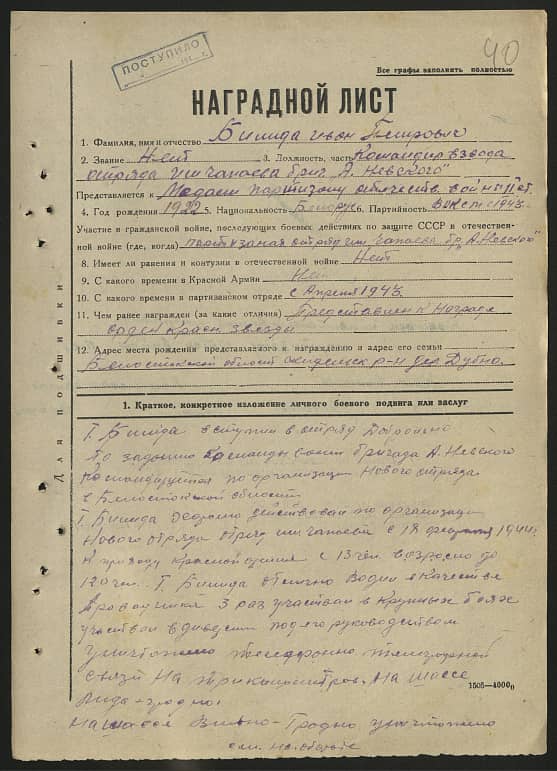 ПОСТУПИЛО
40
Все графы заполнять полностью
НАГРАДНОЙ ЛИСТ
1. Фамилия, имя и отчество Бишда Иван Петрович
2. Звание Нет 3. Должность, часть Командир взвода
отряда им чапаева бриг А. Невского"
Представляется к Медали партизану отечеств. войны II ст
4. Год рождения 1922 5. Национальность Белорус 6. Партийность ВЛКСМ с 1943
Участие в гражданской войне, последующих боевых действиях по защите СССР в отечествен-
ной войне (где, когда) отряд им чапаева бр. А. Невского"
8. Имеет ли ранения и контузии в отечественной войне Нет
9. С какого времени в Красной Армии Нет
10. С какого времени в партизанском отряде с Апреля 1943
11. Чем ранее награжден (за какие отличия) Представлен к Награде
орден Красн звезды
12. Адрес места рождения представляемого к награждению и адрес его семьи
Белостокской области р-н дер Дубно.
Для подшивки
1. Краткое, конкретное изложение личного боевого подвига или заслуг
Т. Бишда вступил в отряд
По заданию Командования бригада А. Невского
Командируется по организации Нового отряда
в Белостокской области
Т. Бишда действовал по организации
Нового отряда отряд им чапаева с 18 февраля 1944
К приходу красной армии с 13 чел возросло до
120 чел. Т. Бишда отлично Водил в качестве
Проводника 3 раз участвовал в крупных боях
участвовал в диверсии под его руководством
уничтожено телефонно телеграфной
связи На три километров. На шоссе
Лида-гродно
На шоссе Вильно-Гродно уничтожено
см. на обороте
1505—4000